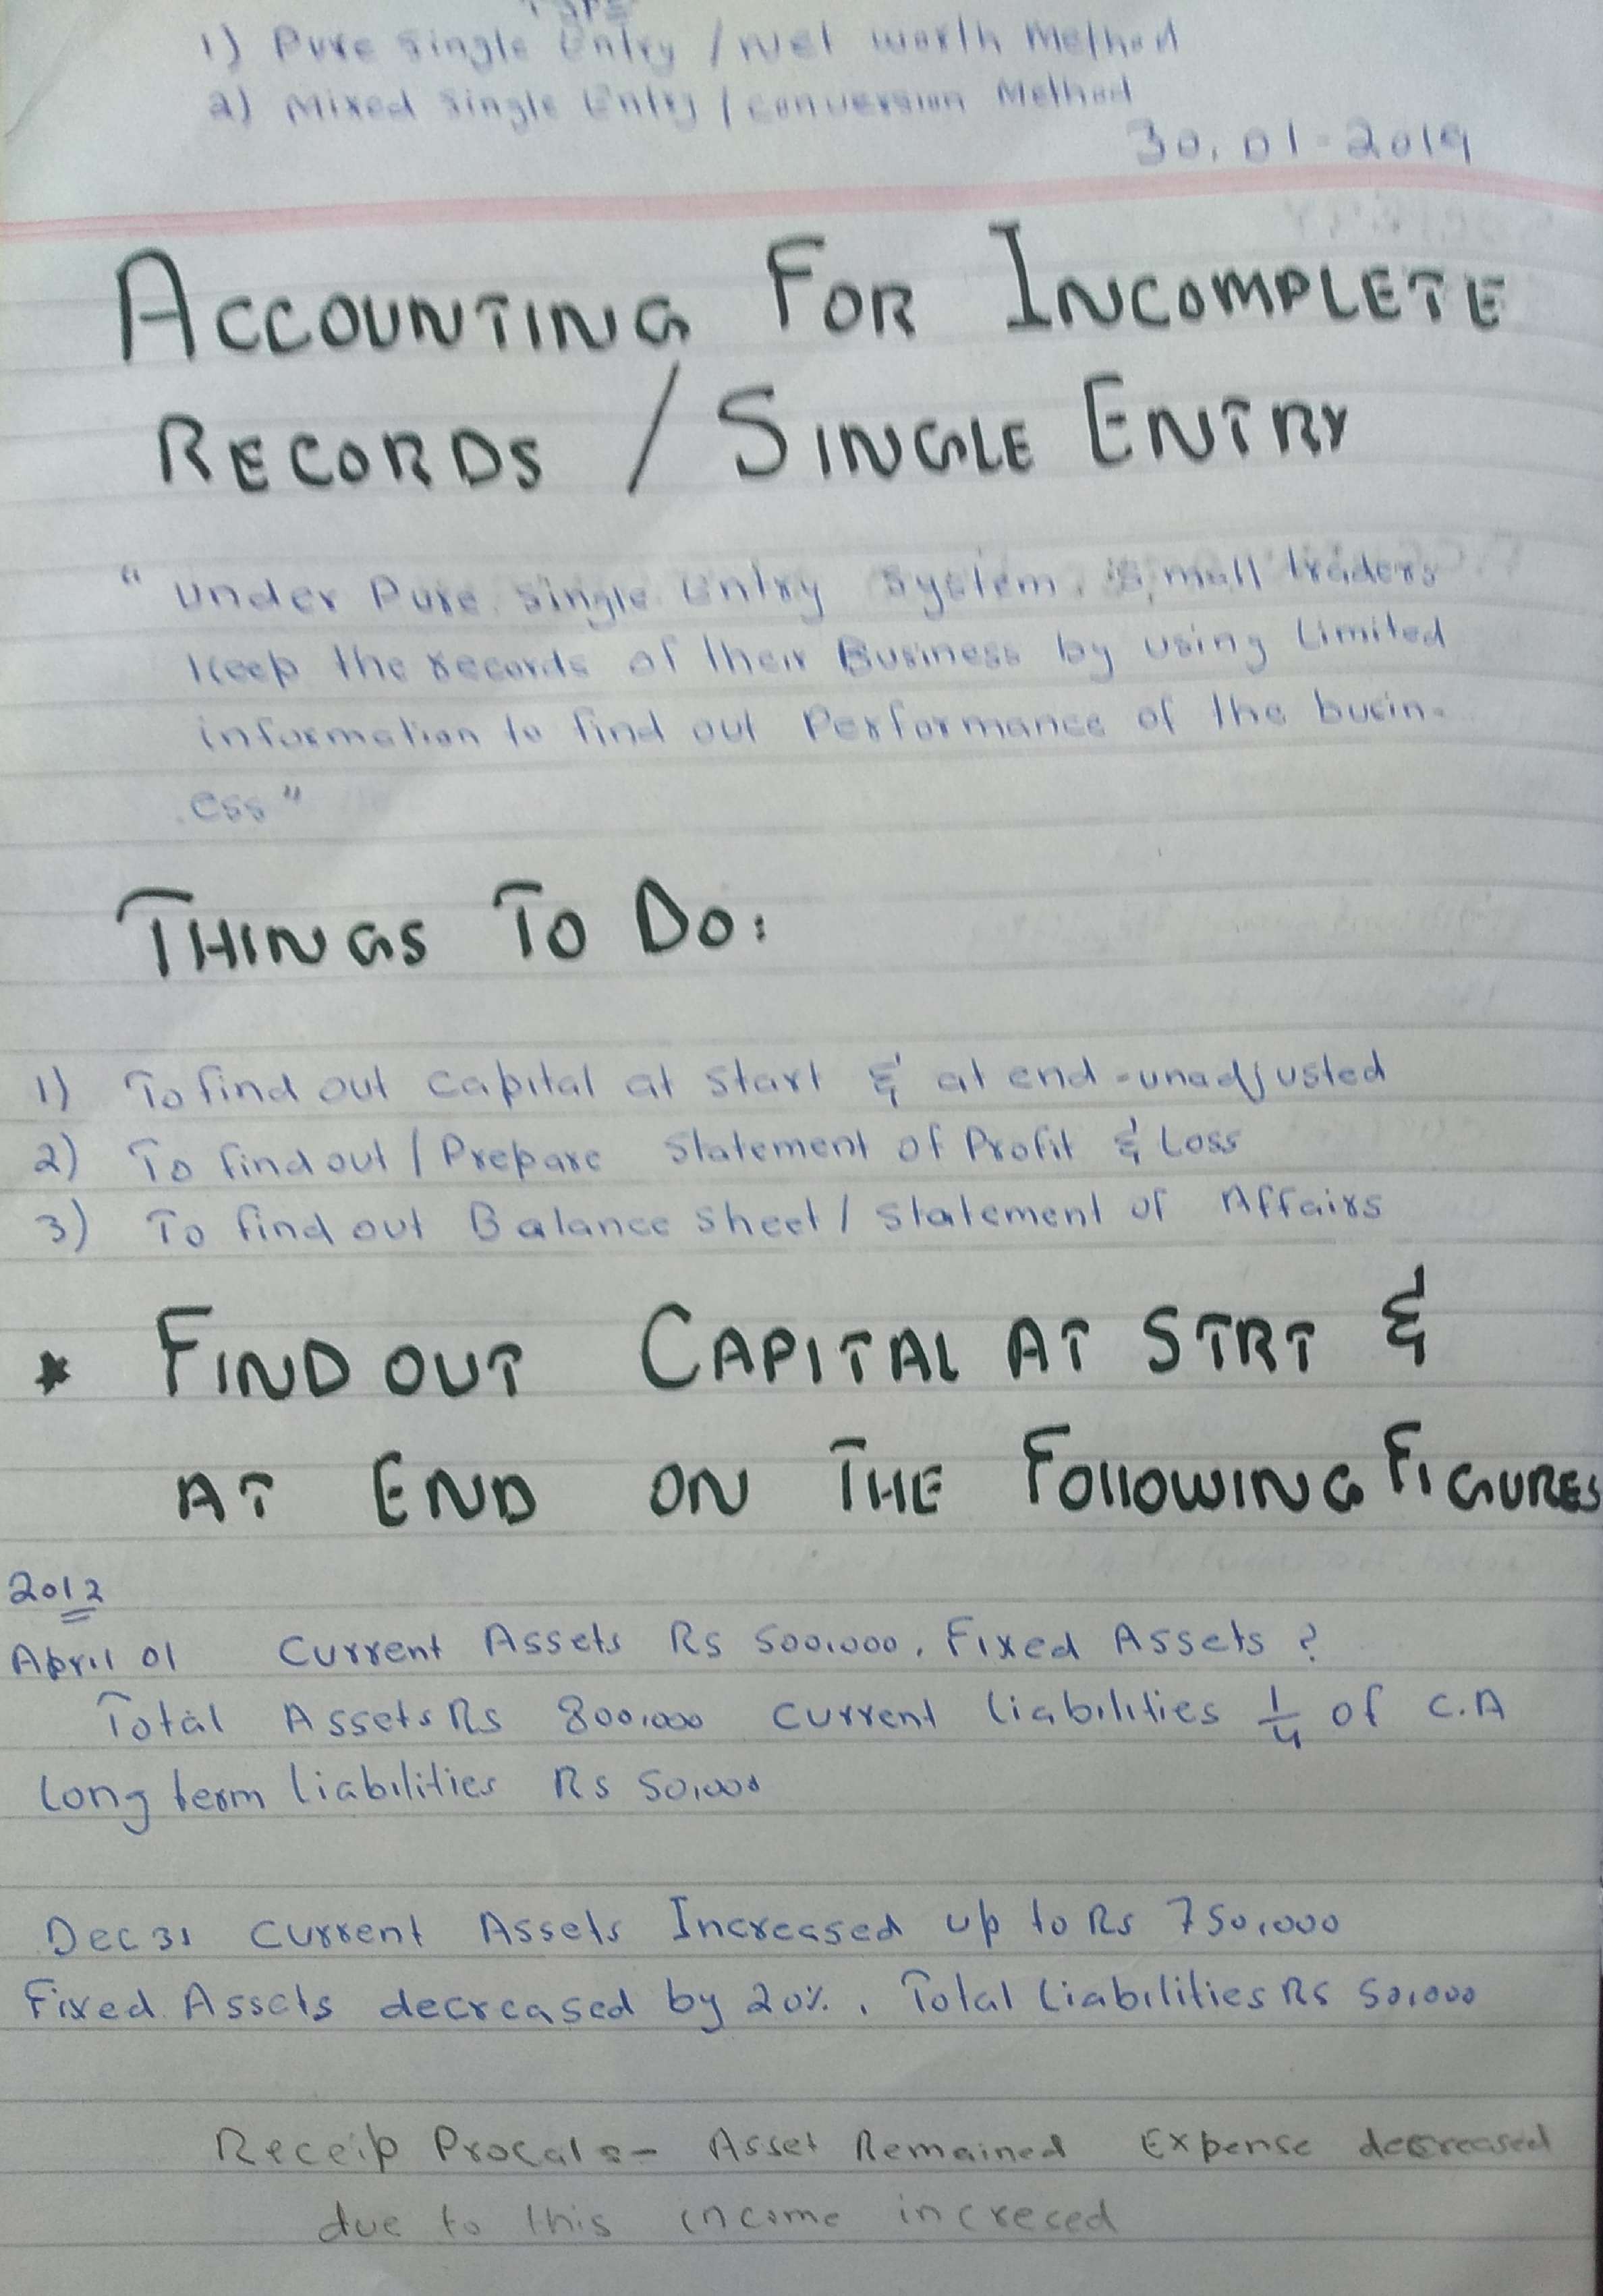 TYPE
1) Pure Single Entry / Net worth Method
2) Mixed Single Entry / conversion Method
30.01-2019
ACCOUNTING FOR INCOMPLETE
RECORDS / SINGLE ENTRY
" Under Pure Single Entry System, Small traders
Keep the records of their Business by using Limited
information to find out Performance of the busin-
ess"
THINGS TO DO:
1) To find out Capital at Start & at end -unadjusted
2) To find out / Prepare Statement of Profit & Loss
3) To find out Balance Sheet / Statement of Affairs
* FIND OUT CAPITAL AT STRT &
AT END ON THE FOllOWING FIGURES
2012
April 01 Current Assets Rs 500,000, Fixed Assets ?
Total Assets Rs 800,000 Current Liabilities 1/4 of C.A
Long term Liabilities Rs 50,000
Dec 31 Current Assets Increased up to Rs 750,000
Fixed Assets decreased by 20%. Total Liabilities Rs 50,000
Receip Procals:- Asset Remained Expense decreased
due to this income incresed